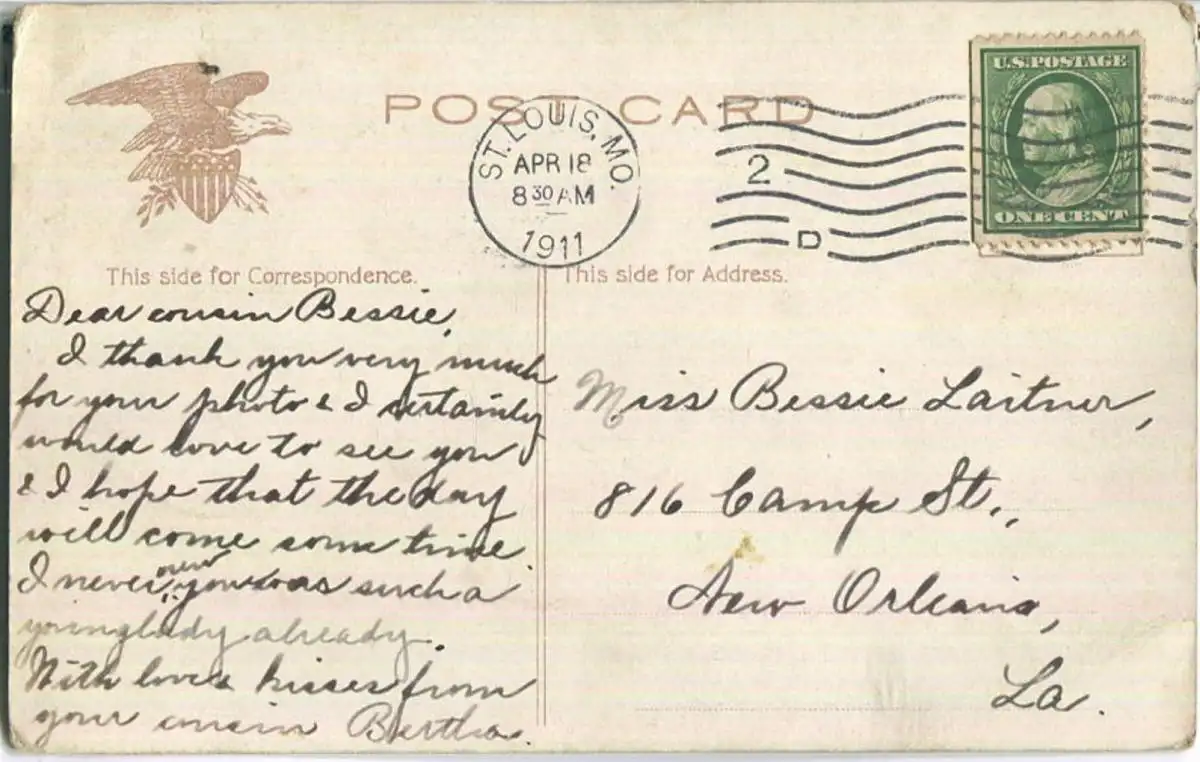 POST CARD
ST. LOUIS, MO.
APR 18
8 30 AM
1911
2
D
U.S. POSTAGE
ONE CENT
This side for Correspondence.
This side for Address.
Dear cousin Bessie,
I thank you very much
for your photo & I certainly
would love to see you
& I hope that the day
will come some time.
I never you was such a
young lady already.
With love & kisses from
your cousin Bertha.
Miss Bessie Laitner,
816 Camp St.,
New Orleans,
La.